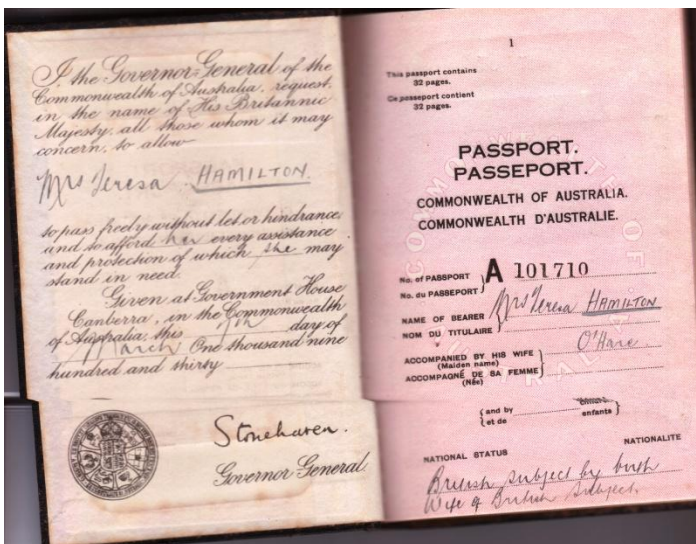 I, the Governor-General of the
Commonwealth of Australia, request,
in the name of His Britannic
Majesty, all those whom it may
concern, to allow
Mrs Teresa HAMILTON.
to pass freely without let or hindrance,
and to afford her every assistance
and protection of which she may
stand in need.
Given at Government House
Canberra, in the Commonwealth
of Australia, this day of
March One thousand nine
hundred and thirty
Stonehaven.
Governor General.
1
This passport contains
32 pages.
Ce passeport contient
32 pages.
PASSPORT.
PASSEPORT.
COMMONWEALTH OF AUSTRALIA.
COMMONWEALTH D'AUSTRALIE.
No. of PASSPORT
No. du PASSEPORT
A 101710
NAME OF BEARER
NOM DU TITULAIRE
Mrs Teresa HAMILTON
ACCOMPANIED BY HIS WIFE
(Maiden name)
ACCOMPAGNÉ DE SA FEMME
(Née)
O'Hare.
and by
et de
enfants
NATIONAL STATUS
NATIONALITE
British subject by birth
Wife of British Subject.